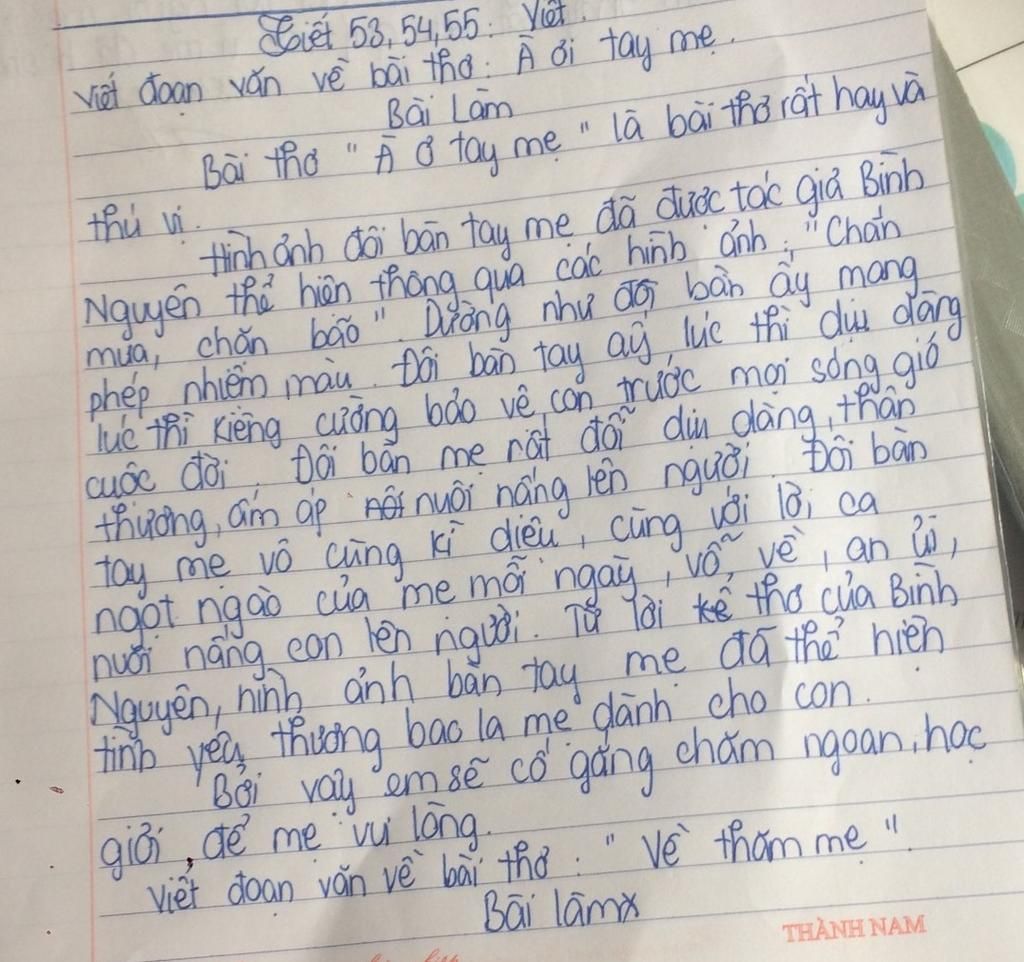 Tiết 53, 54, 55: Viết.
Viết đoạn văn về bài thơ: À ơi tay mẹ.
Bài Làm
Bài thơ "À ơ tay mẹ" là bài thơ rất hay và
thú vị.
Hình ảnh đôi bàn tay mẹ đã được tác giả Bình
Nguyên thể hiện thông qua các hình ảnh: "Chắn
mưa, chắn bão". Dường như đôi bàn ấy mang
phép nhiệm màu. Đôi bàn tay ấy, lúc thì dịu dàng
lúc thì kiêng cường bảo vệ con trước mọi sóng gió
cuộc đời. Đôi bàn mẹ rất đỗi dịu dàng, thân
thương, ấm áp nuôi nấng lên người. Đôi bàn
tay mẹ vô cùng kì diệu, cùng với lời ca
ngọt ngào của mẹ mỗi ngày, vỗ về, an ủi,
nuôi nấng con lên người. Từ lời kể thơ của Bình
Nguyên, hình ảnh bàn tay mẹ đã thể hiện
tình yêu thương bao la mẹ dành cho con.
Bởi vậy em sẽ cố gắng chăm ngoan, học
giỏi, để mẹ vui lòng.
Viết đoạn văn về bài thơ: "Về thăm mẹ".
Bài làm
THÀNH NAM